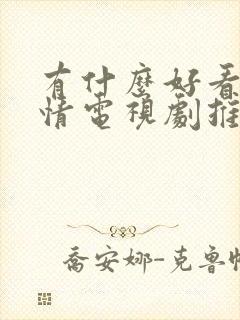 有什麼好看
情電視劇推
喬安娜-克魯